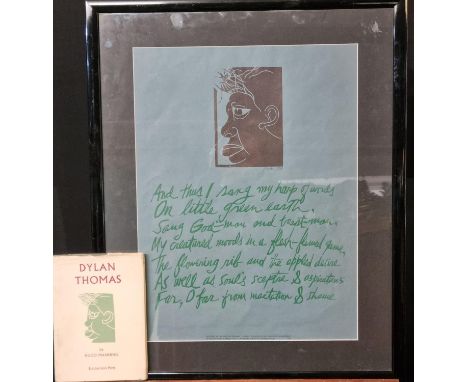 And thus I sang my harp of words
On little green earth.
Sang God-man and beast-man.
My creatured moods in a flesh-flumed game,
The flowering rib and the appled desire
As well as soul's sceptre & aspirations
For, O far from mactation & shame
DYLAN
THOMAS
by
HUGO MANNING
Enitharmon Press